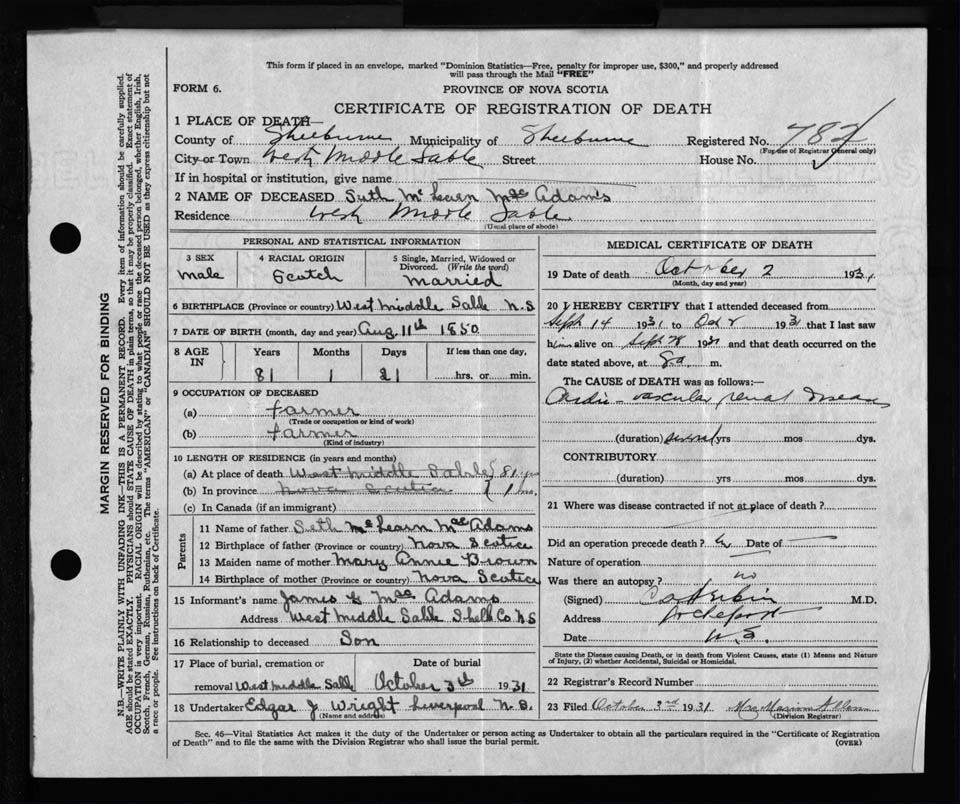 This form if placed in an envelope, marked "Dominion Statistics—Free, penalty for improper use, $300," and properly addressed
will pass through the Mail "FREE"
FORM 6.
PROVINCE OF NOVA SCOTIA
CERTIFICATE OF REGISTRATION OF DEATH
1 PLACE OF DEATH—
County of Shelburne Municipality of Shelburne Registered No. 782
(For use of Registrar General only)
City or Town West Middle Sable Street House No.
If in hospital or institution, give name
2 NAME OF DECEASED Seth McLearn MacAdams
Residence West Middle Sable
(Usual place of abode)
PERSONAL AND STATISTICAL INFORMATION
3 SEX 4 RACIAL ORIGIN 5 Single, Married, Widowed or
Divorced. (Write the word)
Male Scotch Married
6 BIRTHPLACE (Province or country) West Middle Sable N.S
7 DATE OF BIRTH (month, day and year) Aug 11th 1850
8 AGE IN Years Months Days If less than one day,
81 1 21 hrs. or min.
9 OCCUPATION OF DECEASED
(a) farmer
(Trade or occupation or kind of work)
(b) farmer
(Kind of industry)
10 LENGTH OF RESIDENCE (in years and months)
(a) At place of death West Middle Sable 81 yrs
(b) In province Nova Scotia 1 mo.
(c) In Canada (if an immigrant)
Parents
11 Name of father Seth McLearn MacAdams
12 Birthplace of father (Province or country) Nova Scotia
13 Maiden name of mother Mary Annie Brown
14 Birthplace of mother (Province or country) Nova Scotia
15 Informant's name James E MacAdams
Address West Middle Sable Shelb Co N S
16 Relationship to deceased Son
17 Place of burial, cremation or Date of burial
removal West Middle Sable October 3rd 1931
18 Undertaker Edgar J Wright Liverpool N.S.
(Name and address)
MEDICAL CERTIFICATE OF DEATH
19 Date of death October 2 1931
(Month, day and year)
20 I HEREBY CERTIFY that I attended deceased from
Sept 14 1931 to Oct 2 1931 that I last saw
him alive on Sept 28 1931 and that death occurred on the
date stated above, at 8 a. m.
The CAUSE of DEATH was as follows:—
Cardio-vascular renal disease
(duration) several yrs mos dys.
CONTRIBUTORY
(duration) yrs mos dys.
21 Where was disease contracted if not at place of death?
Did an operation precede death? Date of
Nature of operation
Was there an autopsy? no
(Signed) M.D.
Address Lockeport
Date N.S.
State the Disease causing Death, or in death from Violent Causes, state (1) Means and
Nature of Injury, (2) whether Accidental, Suicidal or Homicidal.
22 Registrar's Record Number
23 Filed October 3rd 1931 Mrs Marion Allen
(Division Registrar)
Sec. 46—Vital Statistics Act makes it the duty of the Undertaker or person acting as Undertaker to obtain all the particulars required in the "Certificate of Registration
of Death" and to file the same with the Division Registrar who shall issue the burial permit.
(OVER)
MARGIN RESERVED FOR BINDING
N.B.—WRITE PLAINLY WITH UNFADING INK—THIS IS A PERMANENT RECORD. Every item of information should be carefully supplied.
AGE should be stated EXACTLY. PHYSICIANS should STATE CAUSE OF DEATH in plain terms, so that it may be properly classified. Exact statement of
OCCUPATION is very important. RACIAL ORIGIN will be described by stating to what people or race the deceased person belonged, whether English, Irish,
Scotch, French, German, Russian, Ruthenian, etc. The terms "AMERICAN" or "CANADIAN" SHOULD NOT BE USED as they express citizenship but not
a race or people. Fee instructions on back of Certificate.